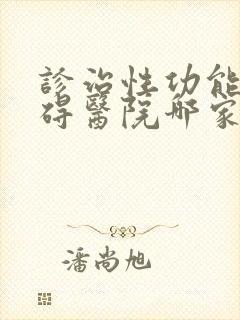 診治性功能
碍醫院那家
潘尚旭